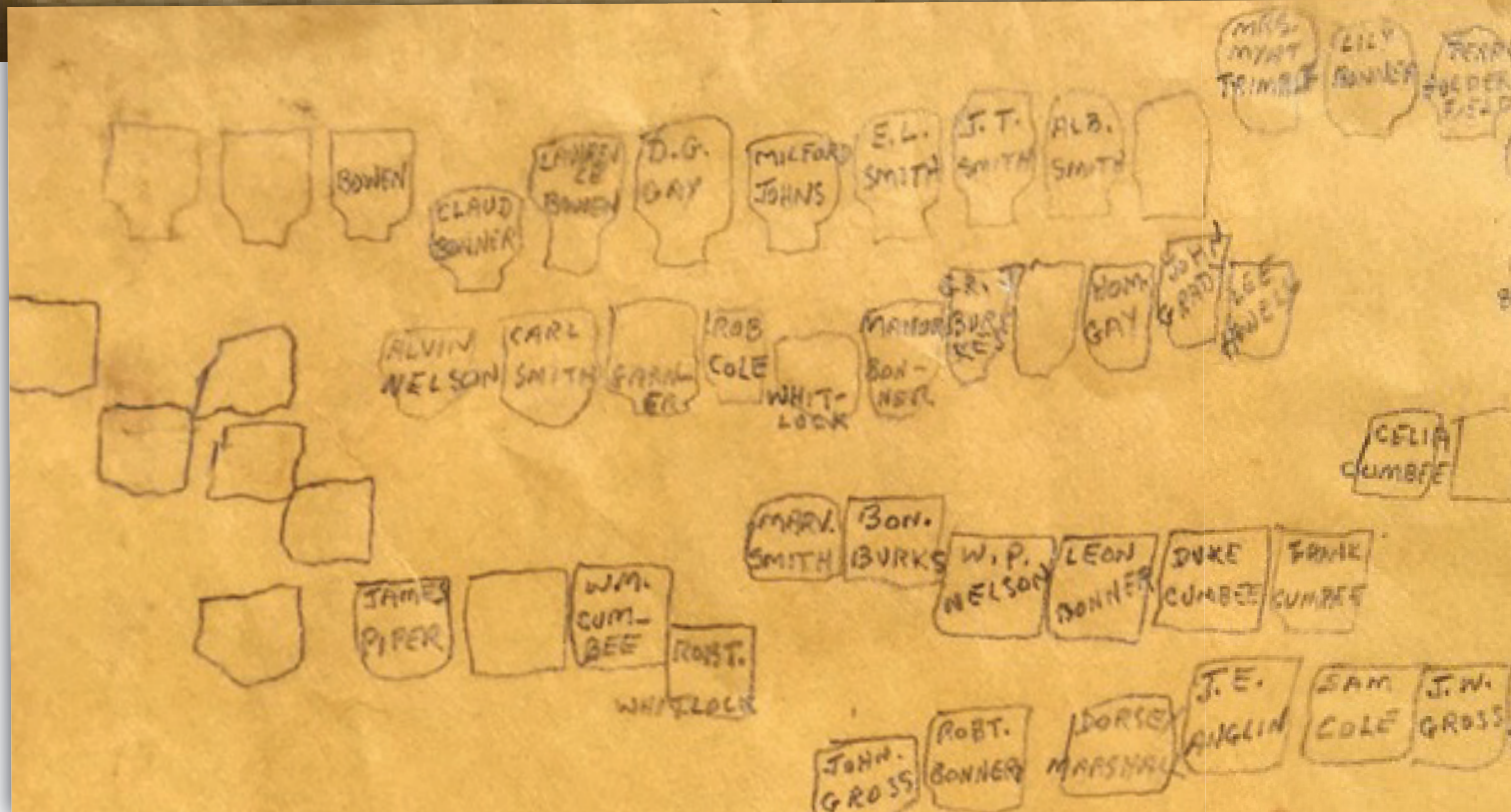 MRS.
MYRT
TRIMBLE
LILY
BONNER
BOWEN
CLAUD
BONNER
BOWEN
D.G.
GAY
MILFORD
JOHNS
E.L.
SMITH
J.T.
SMITH
ALB.
SMITH
ALVIN
NELSON
CARL
SMITH
GARN-
ER
ROB
COLE
WHIT-
LOCK
MANOR
BON-
NER
HOM.
GAY
LEE
CELIA
CUMBEE
MARV.
SMITH
BON.
BURKS
W.P.
NELSON
LEON
BONNER
DUKE
CUMBEE
FRANK
CUMBEE
JAMES
PIPER
W.M.
CUM-
BEE
ROBT.
WHITLOCK
JOHN.
GROSS
ROBT.
BONNER
DORSEY
MARSHAL
J.E.
ANGLIN
SAM
COLE
J.W.
GROSS